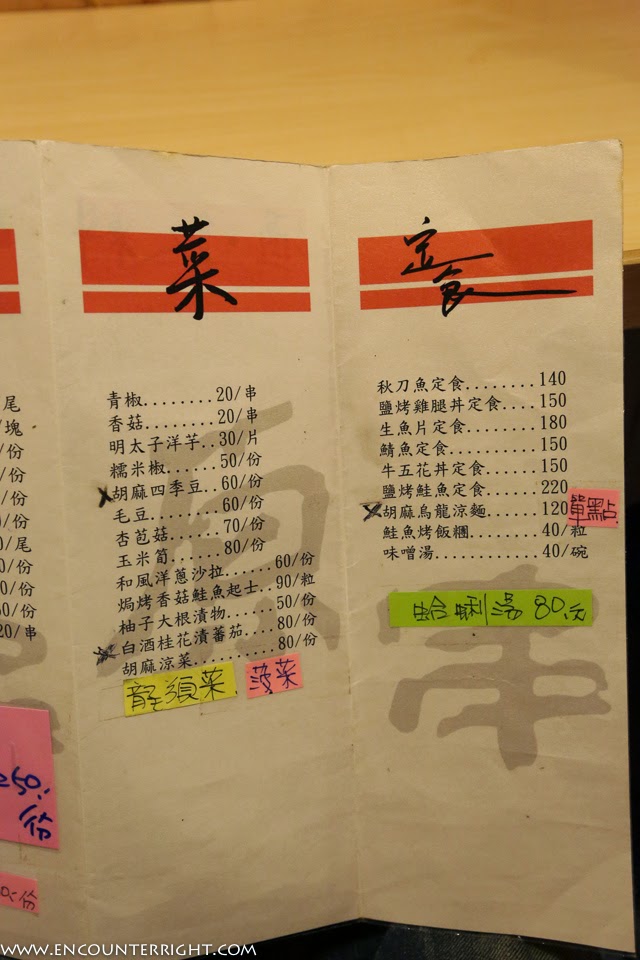 菜
青椒........20/串
香菇........20/串
明太子洋芋..30/片
糯米椒......50/份
胡麻四季豆..60/份
毛豆........60/份
杏苞菇......70/份
玉米筍......80/份
和風洋蔥沙拉......60/份
焗烤香菇鮭魚起士..90/粒
柚子大根漬物......50/份
白酒桂花漬番茄....80/份
胡麻涼菜..........80/份
龍須菜
菠菜
定食
秋刀魚定食........140
鹽烤雞腿丼定食....150
生魚片定食........180
鯖魚定食..........150
牛五花丼定食......150
鹽烤鮭魚定食......220
胡麻烏龍涼麵......120
單點
鮭魚烤飯糰........40/粒
味噌湯............40/碗
蛤蜊湯 80元
尾
/塊
/份
/份
/份
/份
0/尾
0/份
0/份
0/份
20/串
250/份
份
WWW.ENCOUNTERRIGHT.COM